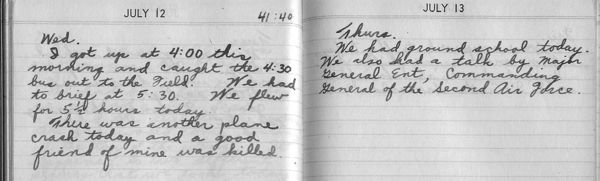 JULY 12
41:40
Wed.
I got up at 4:00 this
morning and caught the 4:30
bus out to the Field. We had
to brief at 5:30. We flew
for 5½ hours today.
There was another plane
crash today and a good
friend of mine was killed.
JULY 13
Thurs.
We had ground school today.
We also had a talk by Major
General Ent, Commanding
General of the Second Air Force.